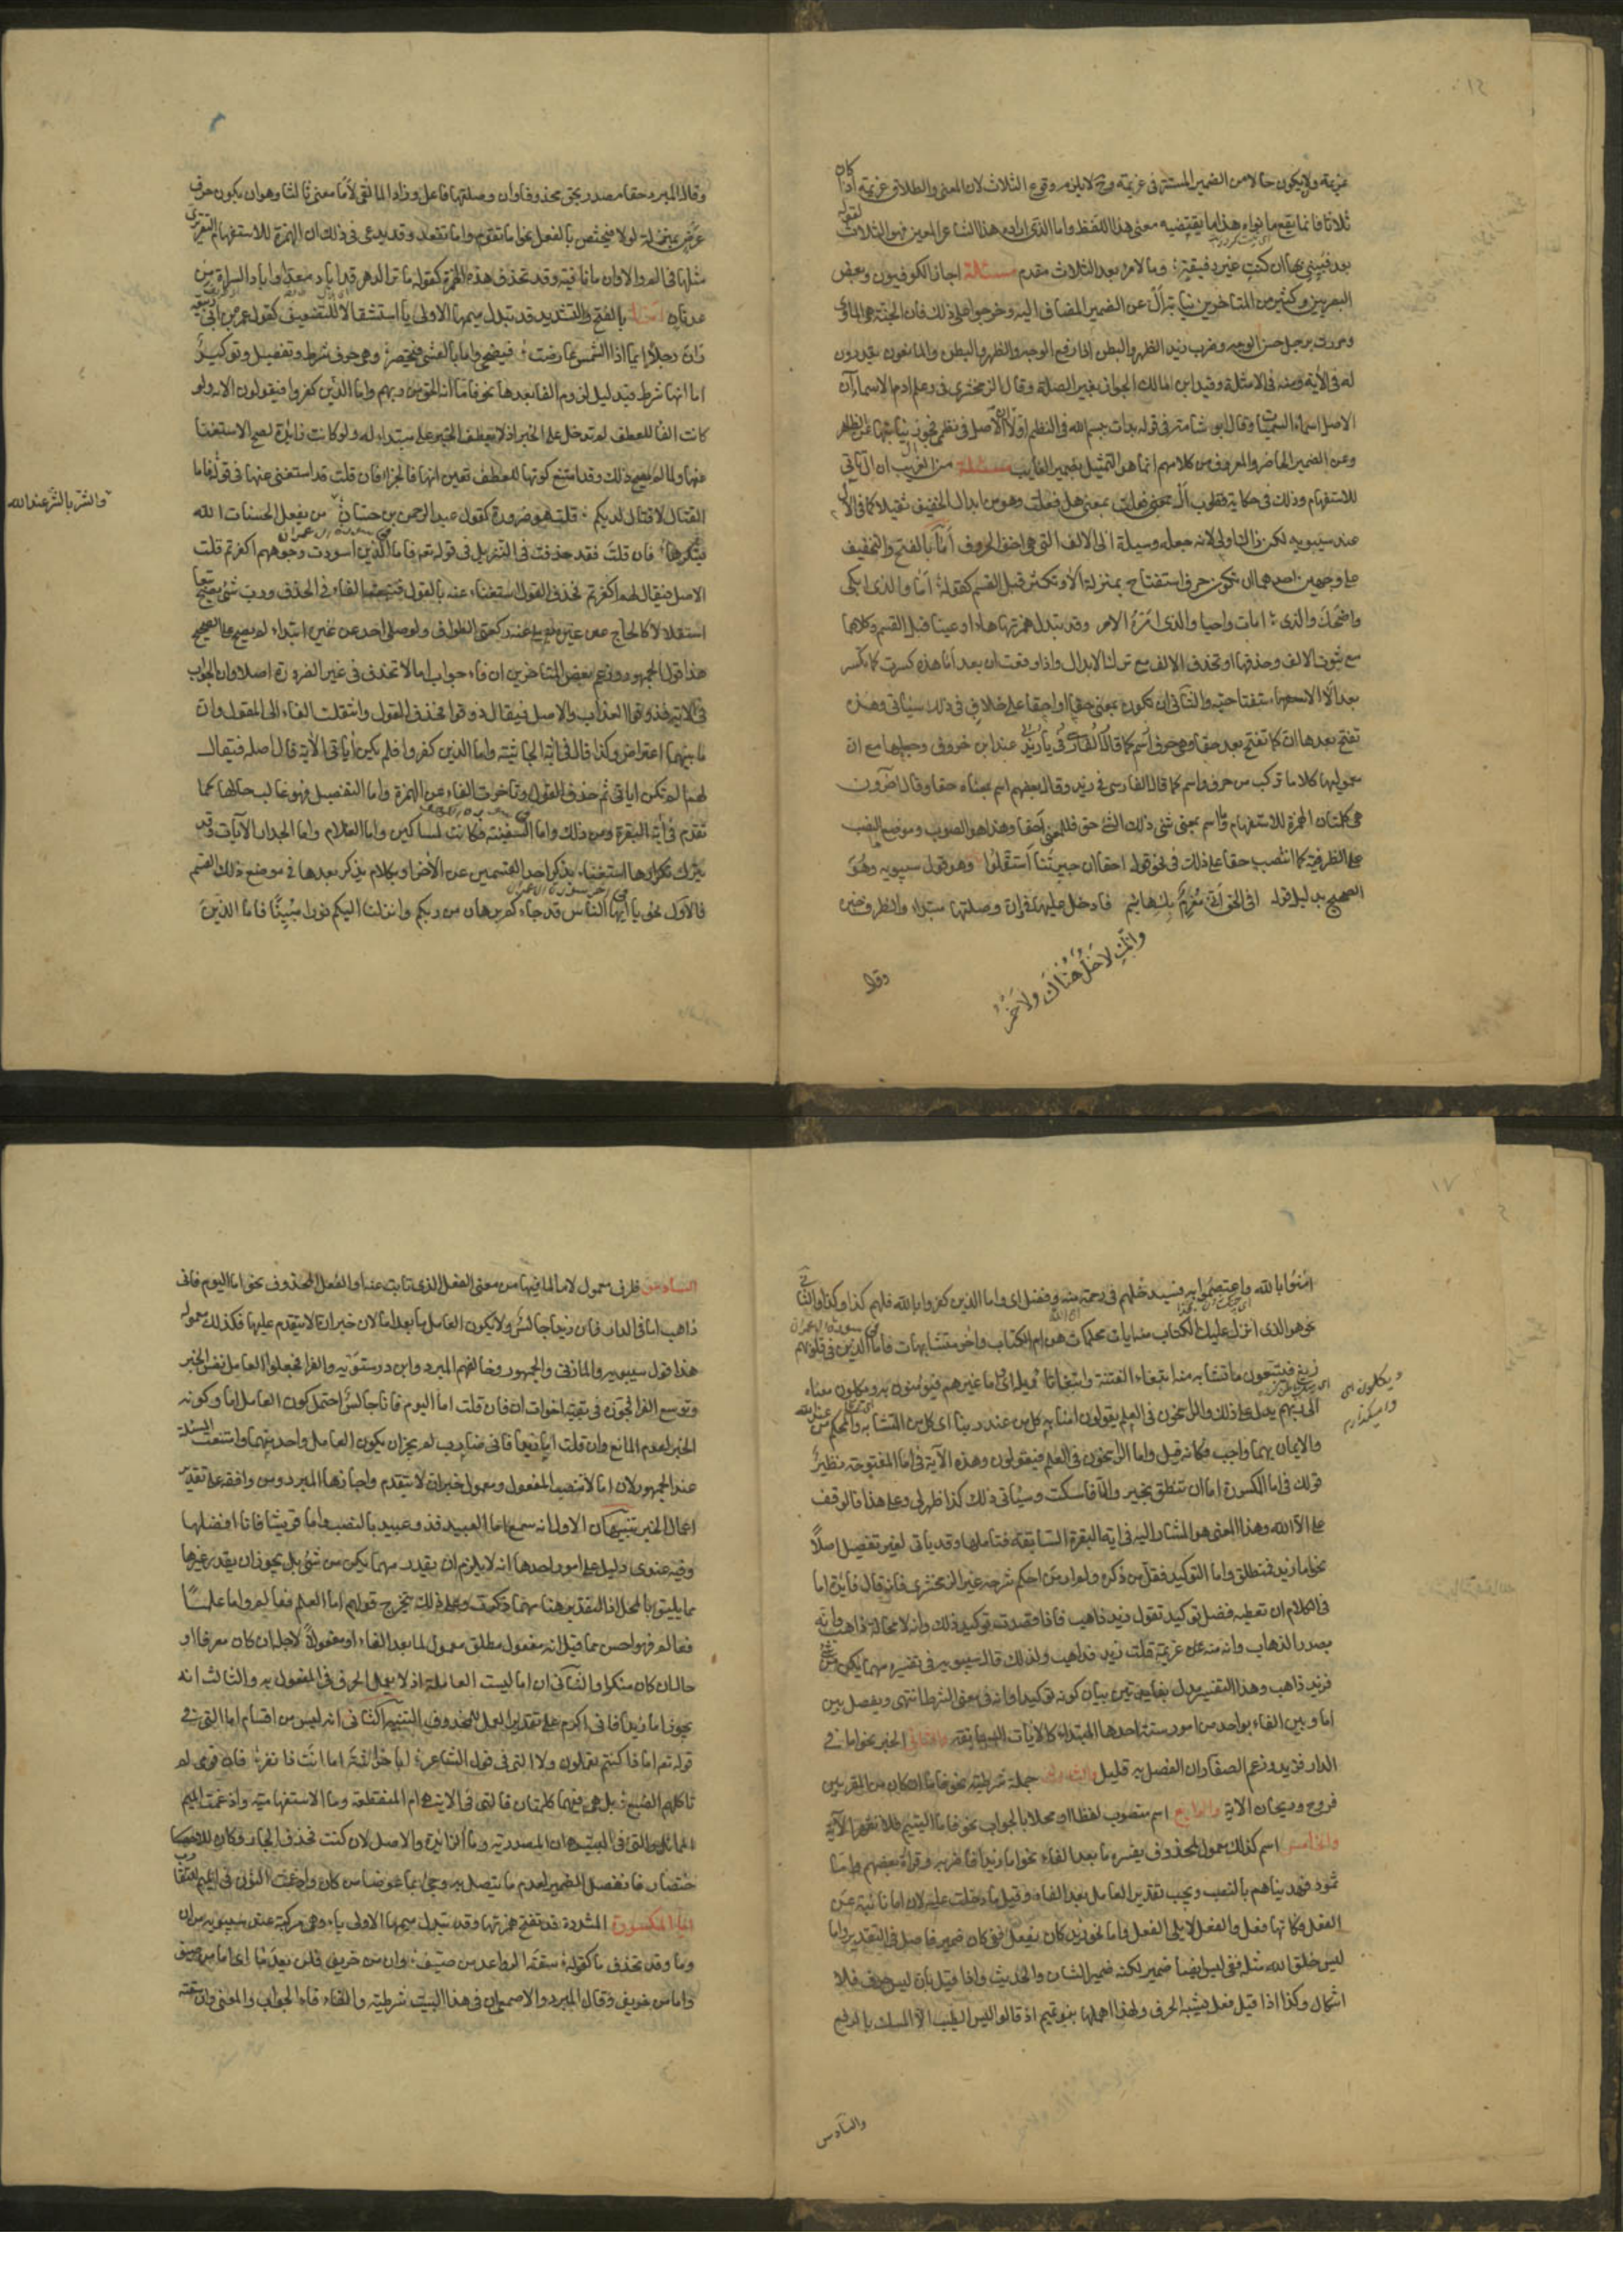 عزيمة ولا يكون حالا من الضمير المستتر في عزيمة وح لا يلزم وقوع الثلاث لان المعنى والطلاق عزيمة اذا كان
ثلاثا فانما يقع ما نواه هذا ما يقتضيه معنى هذا اللفظ واما الذي اراده هذا الشاعر المعين فهو الثلاث لقوله
بعد فبيني بها ان كنت غير رفيقة وما لامرء بعد الثلاث مقدم مسئلة اجاز الكوفيون وبعض
البصريين وكثير من المتاخرين نيابة ال عن الضمير المضاف اليه وخرجوا على ذلك فان الجنة هي الماوى
ومررت برجل حسن الوجه وضرب زيد الظهر والبطن اذا رفع الوجه والظهر والبطن والمانعون يقدرون
له في الآية ومنه في الامثلة وقيد ابن مالك الجواز بغير الصلة وقال الزمخشري في وعلم ادم الاسماء ان
الاصل اسماء المسميات وقال ابو شامة في قوله بدات ببسم الله في النظم اولا ان الاصل في نظمي فجوز نيابتها عن الظاهر
وعن الضمير الحاضر والمعروف من كلامهم انما هو التمثيل بضمير الغايب مسئلة من الغريب ان ال تاتي
للاستفهام وذلك في حكاية قطرب ال فعلت بمعنى هل فعلت وهو من ابدال الخفيف ثقيلا كما في الآل
عند سيبويه لكن ذلك اولى لانه جعله وسيلة الى الالف التي هي اخف الحروف أما بالفتح والتخفيف
على وجهين احدهما ان تكون حرف استفتاح بمنزلة الا وتكثر قبل القسم كقوله أما والذي ابكى
واضحك والذي امات واحيا والذي امره الامر وقد تبدل همزتها هاء او عينا قبل القسم وكلاهما
مع ثبوت الالف وحذفها او تحذف الالف مع ترك الابدال واذا وقعت ان بعد أما هذه كسرت كما تكسر
بعد الا الاستفتاحية والثاني ان تكون بمعنى حقا او احقا على خلاف في ذلك سياتي وهذه
تفتح بعدها ان كما تفتح بعد حقا وهي حرف عند ابن خروف وجعلها مع ان
معموليها كلاما تركب من حرف واسم كما قال الفارسي في يا زيد وقال بعضهم اسم بمعنى حقا وقال اخرون
هي كلمتان الهمزة للاستفهام وما اسم بمعنى شئ ذلك الشئ حق فالمعنى أحقا وهذا هو الصواب وموضع ما نصب
على الظرفية كما انتصب حقا على ذلك في نحو قوله احقا ان جيرتنا استقلوا وهو قول سيبويه وهو
الصحيح بدليل قوله افي الحق اني مغرم بك هائم فادخل عليها في وان وصلتها مبتدا والظرف خبره
وانك لا خل هناك ولا خمر
وقال
وقال المبرد حقا مصدر لحق محذوفا وان وصلتها فاعل وزاد المالقي لأما معنى ثالثا وهو ان يكون حرف
عرض بمنزلة لولا فيختص بالفعل نحو أما تقوم وأما تقعد وقد يدعى في ذلك ان الهمزة للاستفهام التقريري
مثلها في الم والا وان ما نافية وقد تحذف هذه الهمزة كقوله ما ترى الدهر قد اباد معدا واباد السراة من
عدنان أما بالفتح والتشديد قد تبدل ميمها الاولى ياء استثقالا للتضعيف كقول عمر بن ابي ربيعة
رات رجلا ايما اذا الشمس عارضت فيضحى واما بالعشي فيخصر وهي حرف شرط وتفصيل وتوكيد
اما انها شرط فبدليل لزوم الفاء بعدها نحو فاما الذين امنوا فيعلمون انه الحق من ربهم واما الذين كفروا فيقولون الآية ولو
كانت الفاء للعطف لم تدخل على الخبر اذ لا يعطف الخبر على مبتداه ولو كانت زائدة لصح الاستغناء
عنها ولما لم يصح ذلك وقد امتنع كونها للعطف تعين انها فاء الجزاء فان قلت قد استغنى عنها في قوله فاما
القتال لا قتال لديكم قلت هو ضرورة كقول عبد الرحمن بن حسان من يفعل الحسنات الله
يشكرها فان قلت فقد حذفت في التنزيل في قوله تع فاما الذين اسودت وجوههم اكفرتم قلت
والشر بالشر عند الله
الاصل فيقال لهم اكفرتم فحذف القول استغناء عنه بالقول فتبعته الفاء في الحذف ورب شئ يصح تبعا
استقلالا كالحاج عن غيره يصلي عنه ركعتي الطواف ولو صلى احد عن غيره ابتداء لم يصح على الصحيح
هذا قول الجمهور وزعم بعض المتاخرين ان فاء جواب اما لا تحذف في غير الضرورة اصلا وان الجواب
في الآية فذوقوا العذاب والاصل فيقال لهم ذوقوا فحذف القول وانتقلت الفاء الى المقول وان
ما بينهما اعتراض وكذا قال في آية الجاثية واما الذين كفروا افلم تكن آياتي الآية قال اصله فيقال
لهم الم تكن اياتي ثم حذف القول وتاخرت الفاء عن الهمزة واما التفصيل فهو غالب حالها كما
تقدم في آية البقرة ومن ذلك واما السفينة فكانت لمساكين واما الغلام واما الجدار الآيات وقد
يترك تكرارها استغناء بذكر احد القسمين عن الآخر او بكلام يذكر بعدها في موضع ذلك القسم
فالاول نحو يا ايها الناس قد جاءكم برهان من ربكم وانزلنا اليكم نورا مبينا فاما الذين
امنوا بالله واعتصموا به فسيدخلهم في رحمة منه وفضل اي واما الذين كفروا بالله فلهم كذا وكذا والثاني
نحو هو الذي انزل عليك الكتاب منه ايات محكمات هن ام الكتاب واخر متشابهات فاما الذين في قلوبهم
زيغ فيتبعون ما تشابه منه ابتغاء الفتنة وابتغاء تاويله اي واما غيرهم فيؤمنون به ويكلون معناه
الى ربهم يدل على ذلك والراسخون في العلم يقولون امنا به كل من عند ربنا اي كل من المتشابه والمحكم من عند الله
والايمان بهما واجب فكانه قيل واما الراسخون في العلم فيقولون وهذه الآية في اما المفتوحة نظير
قولك في اما المكسورة اما ان تنطق بخير والا فاسكت وسياتي ذلك كذا ظهر لي وعلى هذا فالوقف
على الا الله وهذا المعنى هو المشار اليه في اية البقرة السابقة فتاملها وقد ياتي لغير تفصيل اصلا
نحو اما زيد فمنطلق واما التوكيد فقل من ذكره ولم ار من احكم شرحه غير الزمخشري فانه قال فائدة اما
في الكلام ان تعطيه فضل توكيد تقول زيد ذاهب فاذا قصدت توكيد ذلك وانه لا محالة ذاهب وانه
بصدد الذهاب وانه منه على عزيمة قلت اما زيد فذاهب ولذلك قال سيبويه في تفسيره مهما يكن من شئ
فزيد ذاهب وهذا التفسير مدل بفائدتين بيان كونه توكيدا وانه في معنى الشرط انتهى ويفصل بين
اما وبين الفاء بواحد من امور ستة احدها المبتدا كالآيات السابقة والثاني الخبر نحو اما في
الدار فزيد وزعم الصفار ان الفصل به قليل والثالث جملة شرطية نحو فاما ان كان من المقربين
فروح وريحان الآية والرابع اسم منصوب لفظا او محلا بالجواب نحو فاما اليتيم فلا تقهر الآية
والخامس اسم كذلك معمول لمحذوف يفسره ما بعد الفاء نحو اما زيدا فاضربه وقراءة بعضهم واما
ثمود فهديناهم بالنصب ويجب تقدير العامل بعد الفاء وقبل ما دخلت عليه لان اما نائبة عن
الفعل فكانها فعل والفعل لا يلي الفعل واما نحو زيد كان يفعل ففي كان ضمير فاصل في التقدير واما
ليس خلق الله مثله ففي ليس ايضا ضمير لكنه ضمير الشان والحديث واذا قيل بان ليس حرف فلا
اشكال وكذا اذا قيل فعل يشبه الحرف ولهذا اهملها بنو تميم اذ قالوا ليس الطيب الا المسك بالرفع
والسادس
السادس ظرف معمول لاما لما فيها من معنى الفعل الذي نابت عنه او للفعل المحذوف نحو اما اليوم فاني
ذاهب اما في الدار فان زيدا جالس ولا يكون العامل ما بعد الفاء لان خبر ان لا يتقدم عليها فكذلك معموله
هذا قول سيبويه والمازني والجمهور وخالفهم المبرد وابن درستويه والفراء فجعلوا العامل نفس الخبر
وتوسع الفراء فجوزه في بقية اخوات ان فان قلت اما اليوم فانا جالس احتمل كون العامل اما وكونه
الخبر لعدم المانع وان قلت اما زيدا فاني ضارب لم يجز ان يكون العامل واحد منهما وامتنعت المسئلة
عند الجمهور لان اما لا تنصب المفعول ومعمول خبر ان لا يتقدم واجازها المبرد ومن وافقه على تقدير
اعمال الخبر تنبيهان الاول انه سمع اما العبيد فذو عبيد بالنصب واما قريشا فانا افضلها
وفيه عندي دليل على امور احدها انه لا يلزم ان يقدر مهما يكن من شئ بل يجوز ان يقدر غيرها
مما يليق بالمحل اذ التقدير هنا مهما ذكرت وعلى ذلك يتخرج قولهم اما العلم فعالم واما علما
فعالم فهو احسن مما قيل انه مفعول مطلق معمول لما بعد الفاء او مفعول لاجله ان كان معرفا او
حال ان كان منكرا والثاني ان اما ليست العاملة اذ لا يعمل الحرف في المفعول به والثالث انه
يجوز اما زيدا فاني اكرم على تقدير العمل للمحذوف التنبيه الثاني انه ليس من اقسام اما التي في
قوله تع اماذا كنتم تعملون ولا التي في قول الشاعر ابا خراشة اما انت ذا نفر فان قومي لم
تاكلهم الضبع بل هي فيهما كلمتان فالتي في الآية هي ام المنقطعة وما الاستفهامية وادغمت الميم
في الميم والتي في البيت هي ان المصدرية وما الزائدة والاصل لان كنت فحذف الجار وكان للاختصار
فانفصل الضمير لعدم ما يتصل به وجئ بما عوضا من كان وادغمت النون في الميم للتقارب
اما المكسورة المشددة قد تفتح همزتها وقد تبدل ميمها الاولى ياء وهي مركبة عند سيبويه من ان
وما وقد تحذف ما كقوله سقته الرواعد من صيف وان من خريف فلن يعدما اي اما من صيف
واما من خريف وقال المبرد والاصمعي ان في هذا البيت شرطية والفاء فاء الجواب والمعنى وان سقته